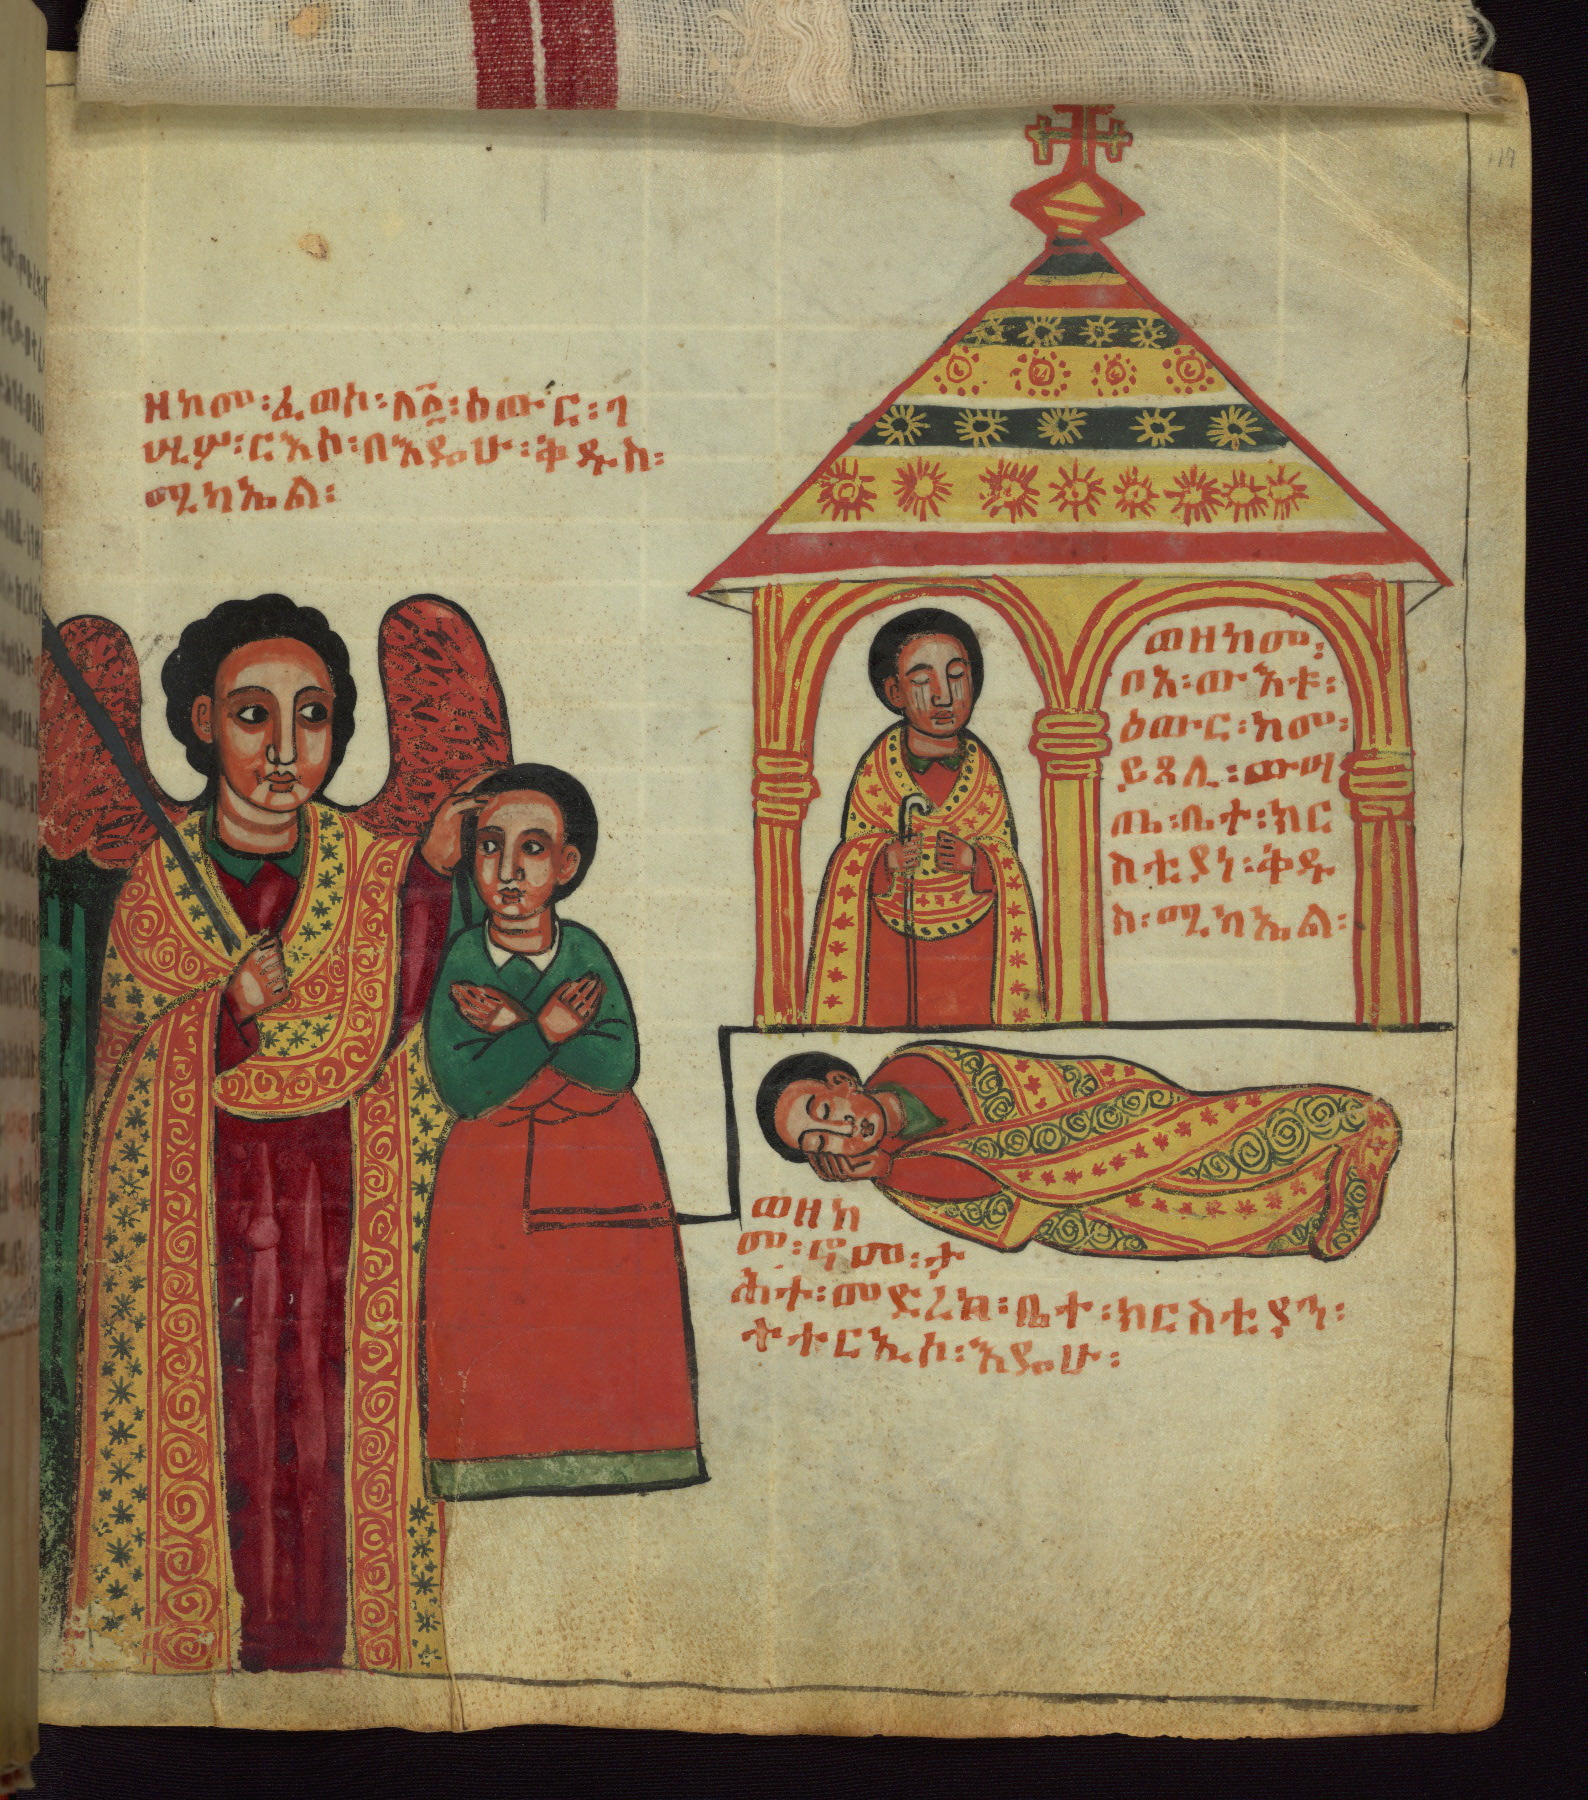 ዘከመ፡ፈወሰ፡ለ፩፡ዕውር፡ገ
ሢሦ፡ርእሰ፡በእዴሁ፡ቅዱስ፡
ሚካኤል፡
ወዘከመ፡
ቦአ፡ውእቱ፡
ዕውር፡ከመ፡
ይጸሊ፡ውሣ
ጤ፡ቤተ፡ክር
ስቲያነ፡ቅዱ
ስ፡ሚካኤል፡
ወዘከ
መ፡ኖመ፡ታ
ሕተ፡መድረክ፡ቤተ፡ክርስቲያን፡
ተተርኢሶ፡እዴሁ፡